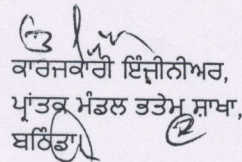 ਕਾਰਜਕਾਰੀ ਇੰਜ਼ੀਨੀਅਰ,
ਪ੍ਰਾਂਤਕ ਮੰਡਲ ਭਤੇਮ ਸ਼ਾਖਾ,
ਬਠਿੰਡਾ।